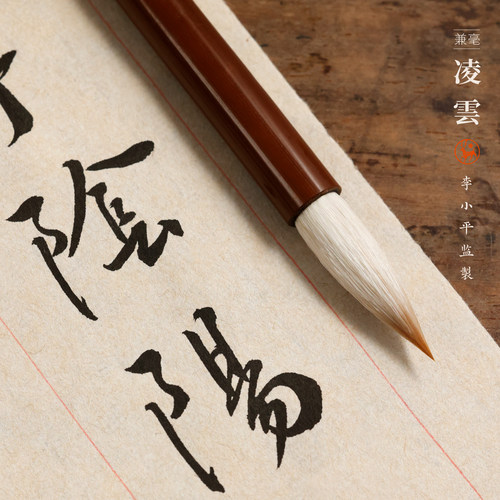 兼毫
凌雲
李小平监製
陰
陽